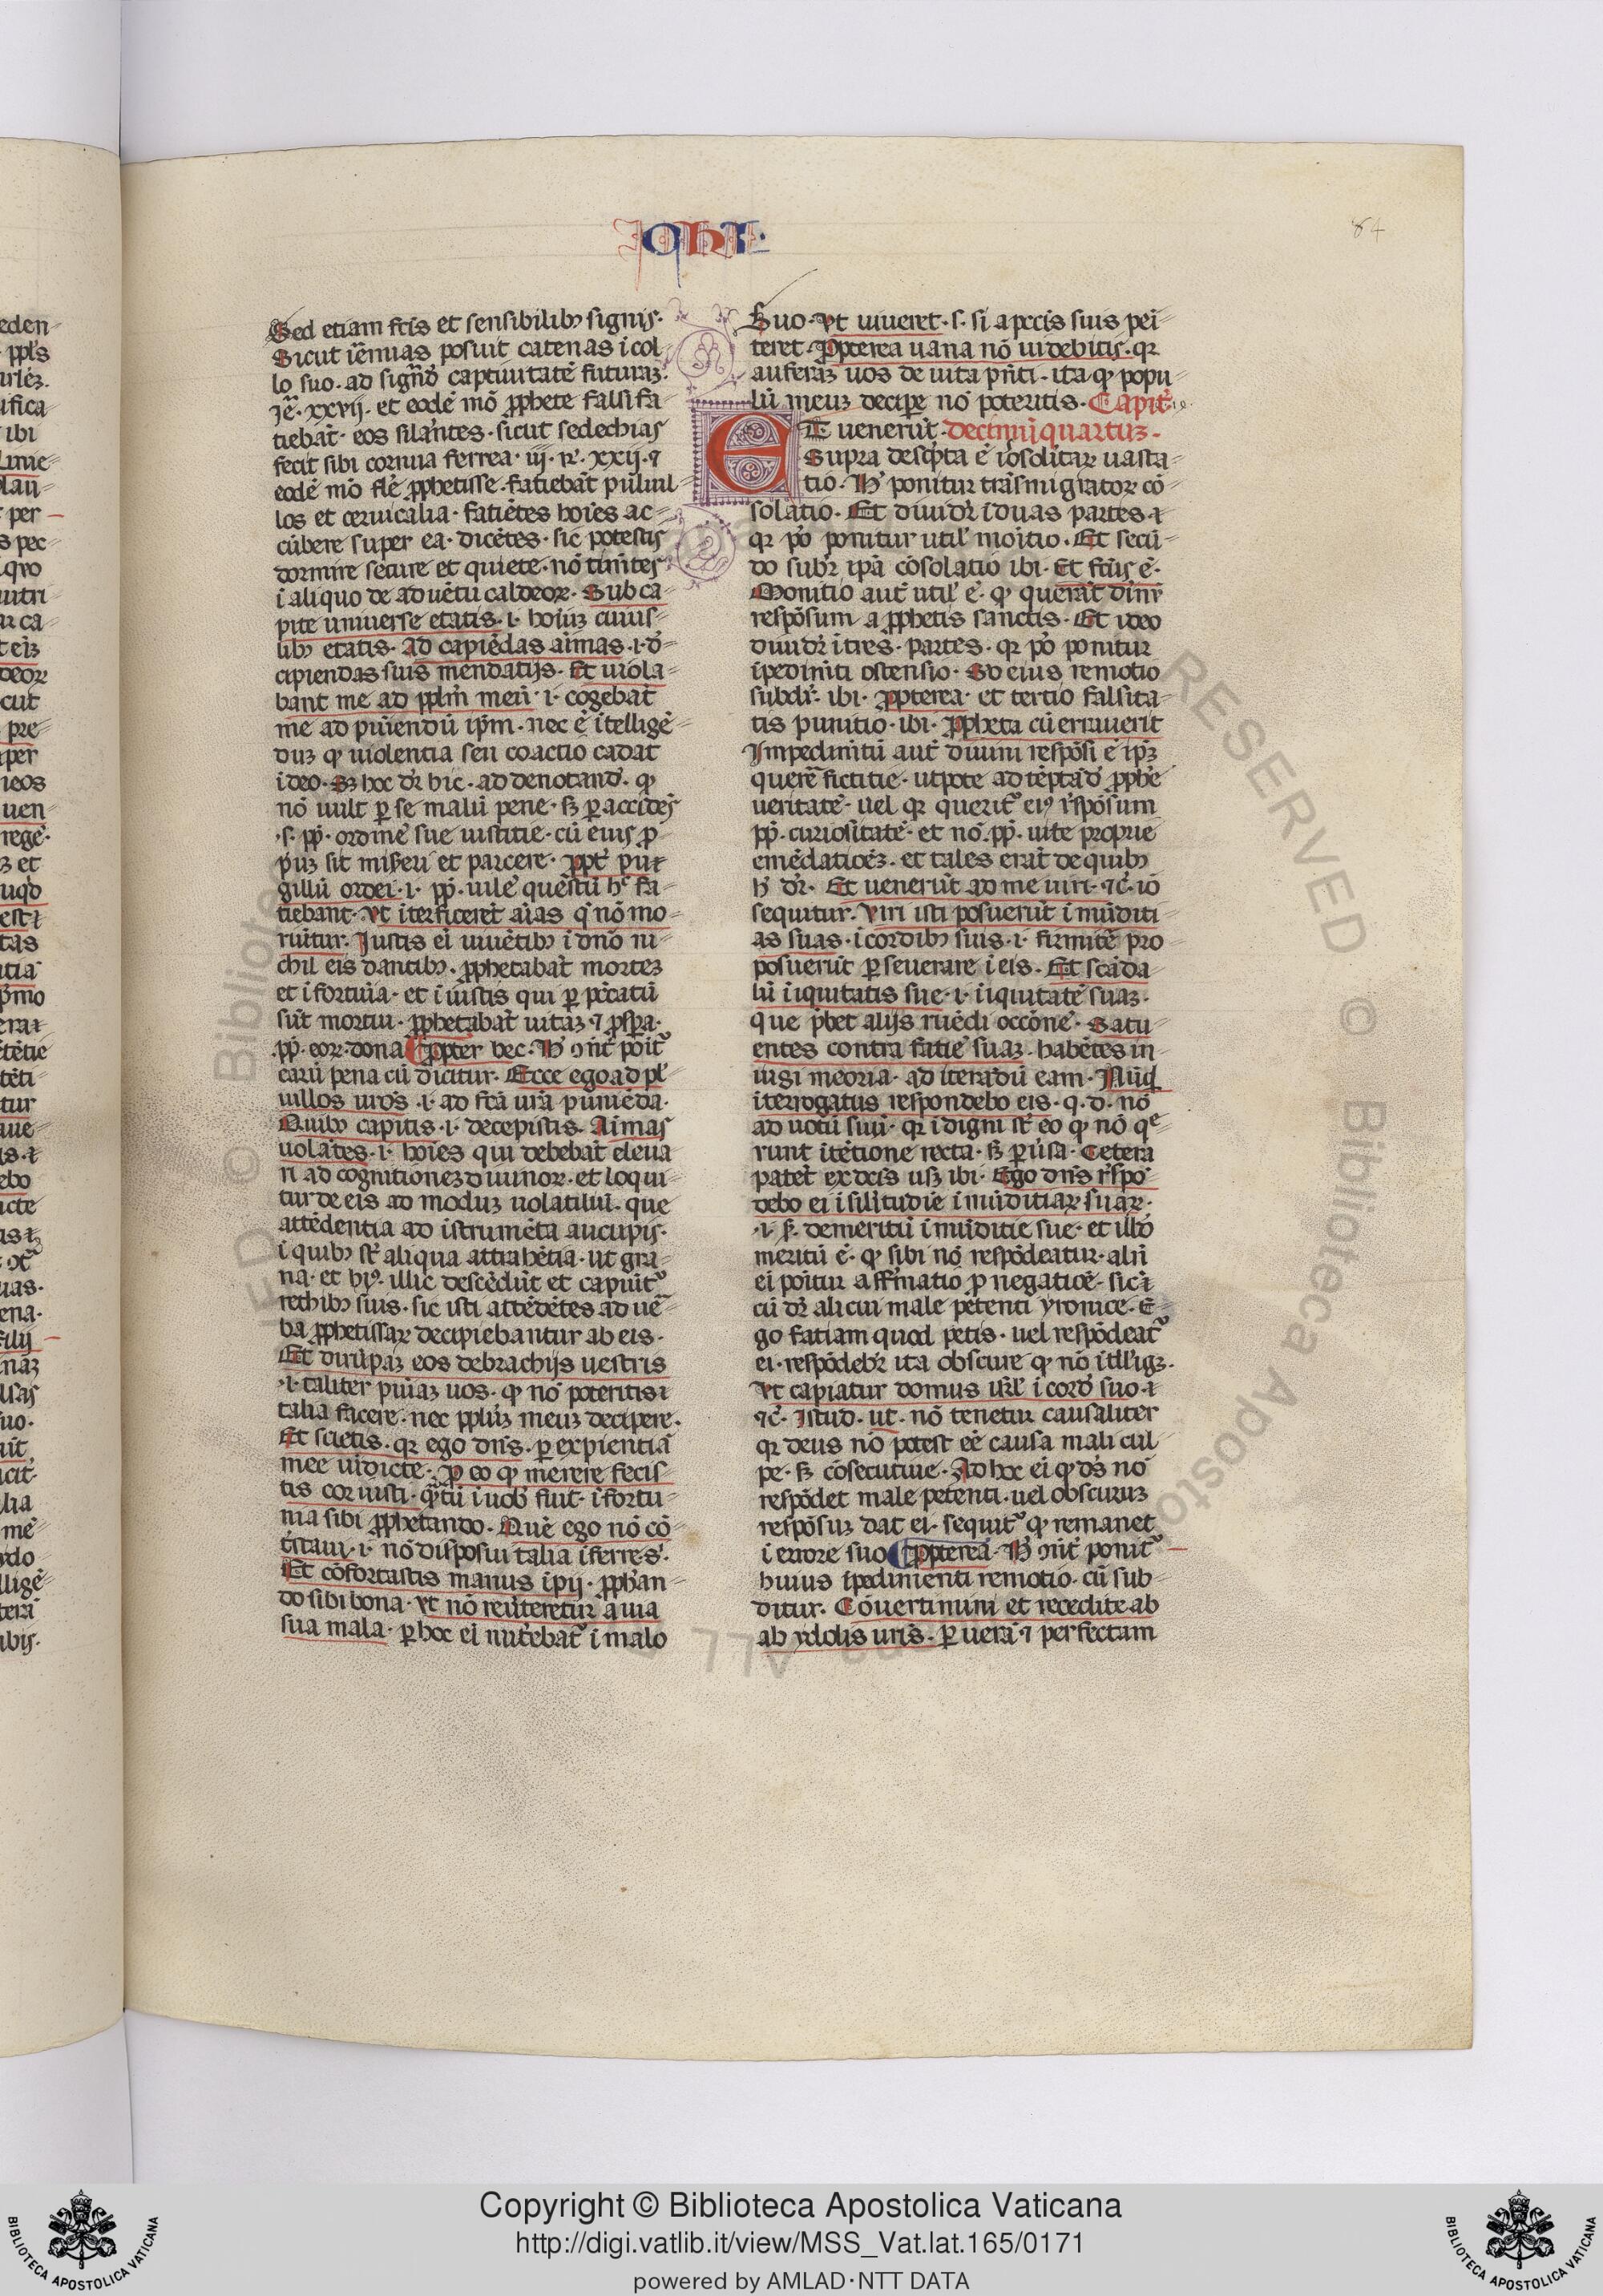 Joh̄l.
84
Sed etiam fc̄is et sensibilibꝫ signis·
Sicut iēmias posuit catenas ī col
lo suo· ad signād̄ captiuitatē futuraꝫ·
Jē· xxvij· et eodē mō ꝓphete falsi fa
tiebāt· eos silantes· sicut sedechias
fecit sibi cornua ferrea· iij· rꝭ· xxij· ⁊
eodē mō fꝉe ꝓphetisse· fatiebāt puluil
los et ceruicalia· fatiētes hoīes ac
cūbere super ea· dicētes· sic potestis
dormire secure et quiete· nō tīmētes
ī aliquo de aduētu caldeoꝝ· Sub ca
pite uniuerse etatis· i· hoīuꝫ cuius
libꝫ etatis· Ad capiēdas aīmas· i· d̄
cipiendas suis mendatijs· Et uiola
bant me ad ppl̄m meū· i· cogebāt
me ad puīendū ip̄m· nec ē ītelligē
duꝫ ꝙ uiolentia seu coactio cadat
ī deo· Sꝫ hoc dr̄ hic· ad denotand̄· ꝙ
nō uult ꝑ se malū pene· sꝫ ꝑ accidēs
·s· ꝓp̄· ordinē sue iustitie· cū eius ꝓ
p̄uꝫ sit mis̄eri et parcere· ꝓpt̄ pu
gillū ordei· i· ꝓp̄· uilē questū hᶜ fa
tiebant· Vt īterficeret aīas q̄ nō mo
riuītur· Justis eī uiuētibꝫ ī dn̄o ni
chil eis dantibꝫ· ꝓphetabāt morteꝫ
et ī fortuīa· et ī iustis qui ꝑ pc̄catū
sūt mortui· ꝓphetabāt uitaꝫ ⁊ ꝓsꝑa·
ꝓp̄· eoꝝ dona ¶ ꝓpter hec· H̄ ꝯn̄t̄ poīt᷑
earū pena cū dicitur· Ecce ego ad pl̄
uillos ur̄os· i· ad fc̄a ur̄a puniēda·
Quibꝫ capitis· i· decepistis· Aīmas
uolātes· i· hoīes qui debebāt eleua
ri ad cognitioneꝫ diuinoꝝ· et loqui
tur de eis ad moduꝫ uolatiliū· que
attēdentia ad īstrumēta aucupis·
ī quibꝫ st̄ aliqua attrahētia· ut gra
na· et hꝰ· illic descēdūt et capiūt᷑
rethibꝫ suis· sic isti attēdētes ad ūe
ba ꝓphetissaꝝ decipiebantur ab eis·
Et dirūpaꝫ eos de brachijs uestris
·i· taliter puīaꝫ uos· ꝙ nō poteritis
talia facere· nec ppl̄uꝫ meuꝫ decipere·
Et scietis· qꝛ ego dn̄s· ꝑ expientiā
mee uīdicte· ꝓ eo ꝙ merere fecis
tis cor iusti· q̄ tū ī uob̄ fuit· ī fortu
nia sibi ꝓphetando· Quē ego nō cō
tristaui· i· nō disposui talia īferre s̄·
Et cōfortastis manus īpij· ꝓph̄an
do sibi bona· Vt nō reūteretur a uia
sua mala· ꝑ hoc eī nut̄ebāt᷑ ī malo
Suo· Vt uiueret· s· si a pcc̄is suis peī
teret· ꝓpterea uana nō uidebitis· qꝛ
auferaꝫ uos de uita pn̄ti· ita ꝙ popu
lū meuꝫ decipe nō poteritis· Capit̄
Et uenerūt· decimūquartuꝫ·
Supra desc̄pta ē īh̄osolitaꝝ uasta
tio· H̄ ponitur trās migratoꝝ cō
solatio· Et diuidr̄ ī duas partes
qꝛ p̄o ponitur util' moītio· Et secū
do subr̄ ipā cōsolatio ibi· Et fc̄us ē·
Monitio aut̄ util' ē· ꝙ querāt diuī
respōsum a ꝓphetis sanctis· Et ideo
diuidr̄ ī tres· partes· qꝛ p̄o ponitur
īpedimēti ostensio· Sō eius remotio
subdr̄· ibi· ꝓpterea· et tertio falsita
tis punitio· ibi· ꝓpheta cū errauerit
Jmpedimtū aut̄ diuini respōsi ē ip̄ꝫ
querer̄ fictitie· utpote ad tēptād̄ ꝓphē
ueritatē· uel qꝛ querit᷑ eiꝰ r̄spōsum
ꝓp̄· curiositatē· et nō ꝓp̄· uite proprie
emēdatiōeꝫ· et tales erāt de quibꝫ
h̄ dr̄· Et uenerūt ad me uiri· ⁊c̄· iō
sequitur· Viri isti posuerūt īmūditi
as suas· ī cordibꝫ suis· i· firmitē pro
posuerūt ꝑseuerare ī eis· Et scāda
lū iīquitatis sue· i· iīquitatē suaꝫ·
que p̄bet alijs ruēdi occ̄onē· Statu
entes contra fatiē suaꝫ· habētes in
iugi meoria· ad iterādū eam· Nūq̄
īterrogatus respondebo eis· q· d· nō
ad uotū suū· qꝛ īdigni st̄ eo ꝙ nō qᵉ
runt ītētione recta· sꝫ ꝑuersa· Cetera
patēt ex dc̄is usꝫ ibi· Ego dn̄s r̄spō
debo ei ī silitudīe īmūditiaꝝ suaꝝ·
·i· s̄· demeritū īmūditie sue· et illd̄
meritū ē· ꝙ sibi nō respōdeatur· alii
eī poītur affirmatio ꝓ negatiōe· sic
cū dr̄ alicui male petenti yronice· E
go fatiam quod petis· uel respōdeāt᷑
ei· respōdebr̄ ita obscure ꝙ nō ītelligꝫ·
Vt capiatur domus isrl̄ ī cord̄ suo
⁊c̄· Jstud· ut· nō tenetur causaliter
qꝛ deus nō potest eē causa mali cul
pe· sꝫ cōsecutiue· Ad hoc eī ꝙ ds̄ nō
respōdet male petenti· uel obscuruꝫ
respōsuꝫ dat ei· sequit᷑ ꝙ remanet
ī errore suo ¶ ꝓpterea· H̄ ꝯn̄t̄ ponit᷑
huius īpedimenti remotio· cū sub
ditur· Cōuertimini et recedite ab
ab ydolis ur̄is· ꝑ uerā ⁊ perfectam
Copyright © Biblioteca Apostolica Vaticana
http://digi.vatlib.it/view/MSS_Vat.lat.165/0171
powered by AMLAD·NTT DATA
BIBLIOTECA APOSTOLICA VATICANA
BIBLIOTECA APOSTOLICA VATICANA